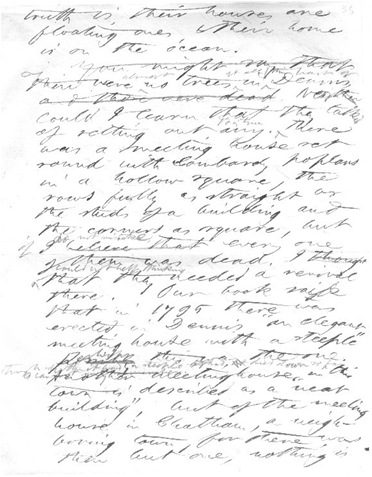 truth is their houses are 33
floating ones & their home
is on the ocean.
You might say that
there were no trees in Dennis
Neither
could I learn that they talked
of setting out any. There
was a meeting house set
round with Lombardy poplars
in a hollow square, the
rows fully as straight as
the studs of a building and
the corners as square, but
if I believe that every one
of them was dead. I thought
could not help thinking
that they needed a revival
there. Our book says
that in 1795 there was
erected in Dennis "an elegant
meeting house with a steeple"
perhaps this was the one.
Another meeting house in this
town is described as a neat
building", but of the meeting
house in Chatham, a neigh-
boring town, for there was
then but one, nothing is